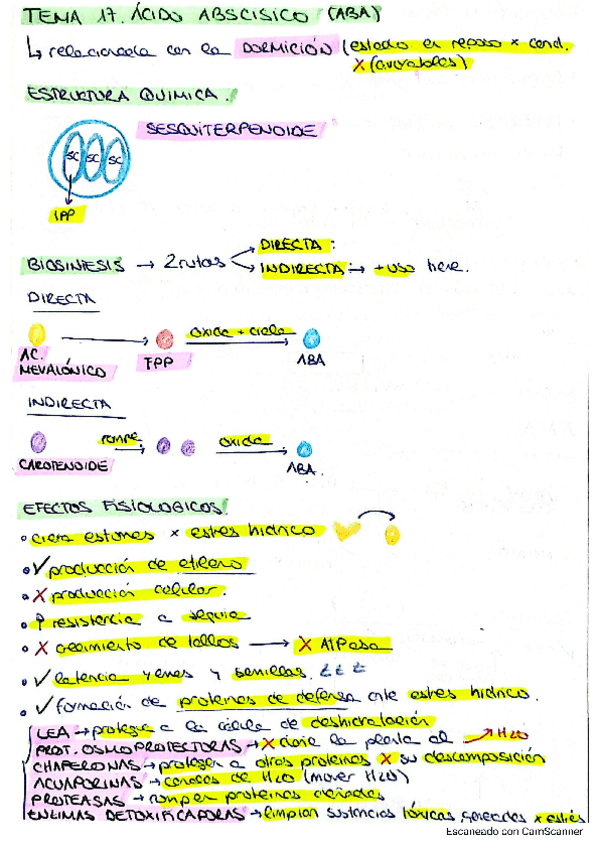 TEMA 17. ÁCIDO ABSCISICO (ABA)
↳ relacionada con la DORMICIÓN (estado en reposo x cond.
X favorables)
ESTRUCTURA QUIMICA.
SESQUITERPENOIDE
5C 5C 5C
IPP
BIOSINTESIS → 2 rutas
DIRECTA:
INDIRECTA → + uso
DIRECTA
AC. MEVALÓNICO → FPP oxida + cicla → ABA
INDIRECTA
CAROTENOIDE rompe → oxida → ABA.
EFECTOS FISIOLOGICOS:
• cierra estomas x estres hidrico
• ✓ producción de etileno
• X producción celular.
• ↑ resistencia a sequia
• X crecimiento de tallos → X ATPasa
• ✓ latencia yemas y semillas. z z z
• ✓ formación de proteinas de defensa ante estres hidrico.
LEA → protege a la célula de deshidratación
PROT. OSMOPROTECTORAS → X la planta al ↗ H2O
CHAPERONAS → protegen a otras proteinas X su descomposición
ACUAPORINAS → canales de H2O (mover H2O)
PROTEASAS → rompen proteinas dañadas
ENZIMAS DETOXIFICADORAS → limpian sustancias tóxicas generadas x estrés
Escaneado con CamScanner